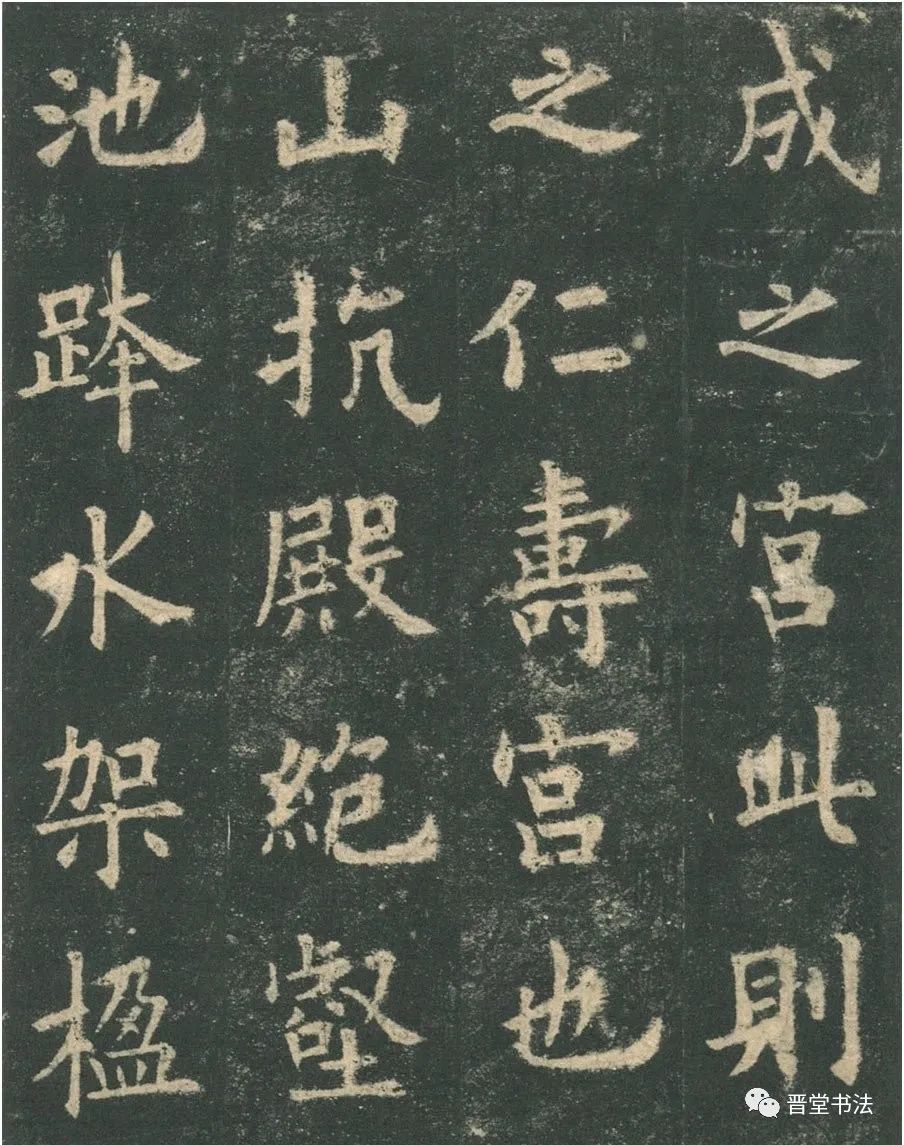 成之宮此則
之仁壽宮也
山抗殿絶壑
池跨水架楹
晋堂书法